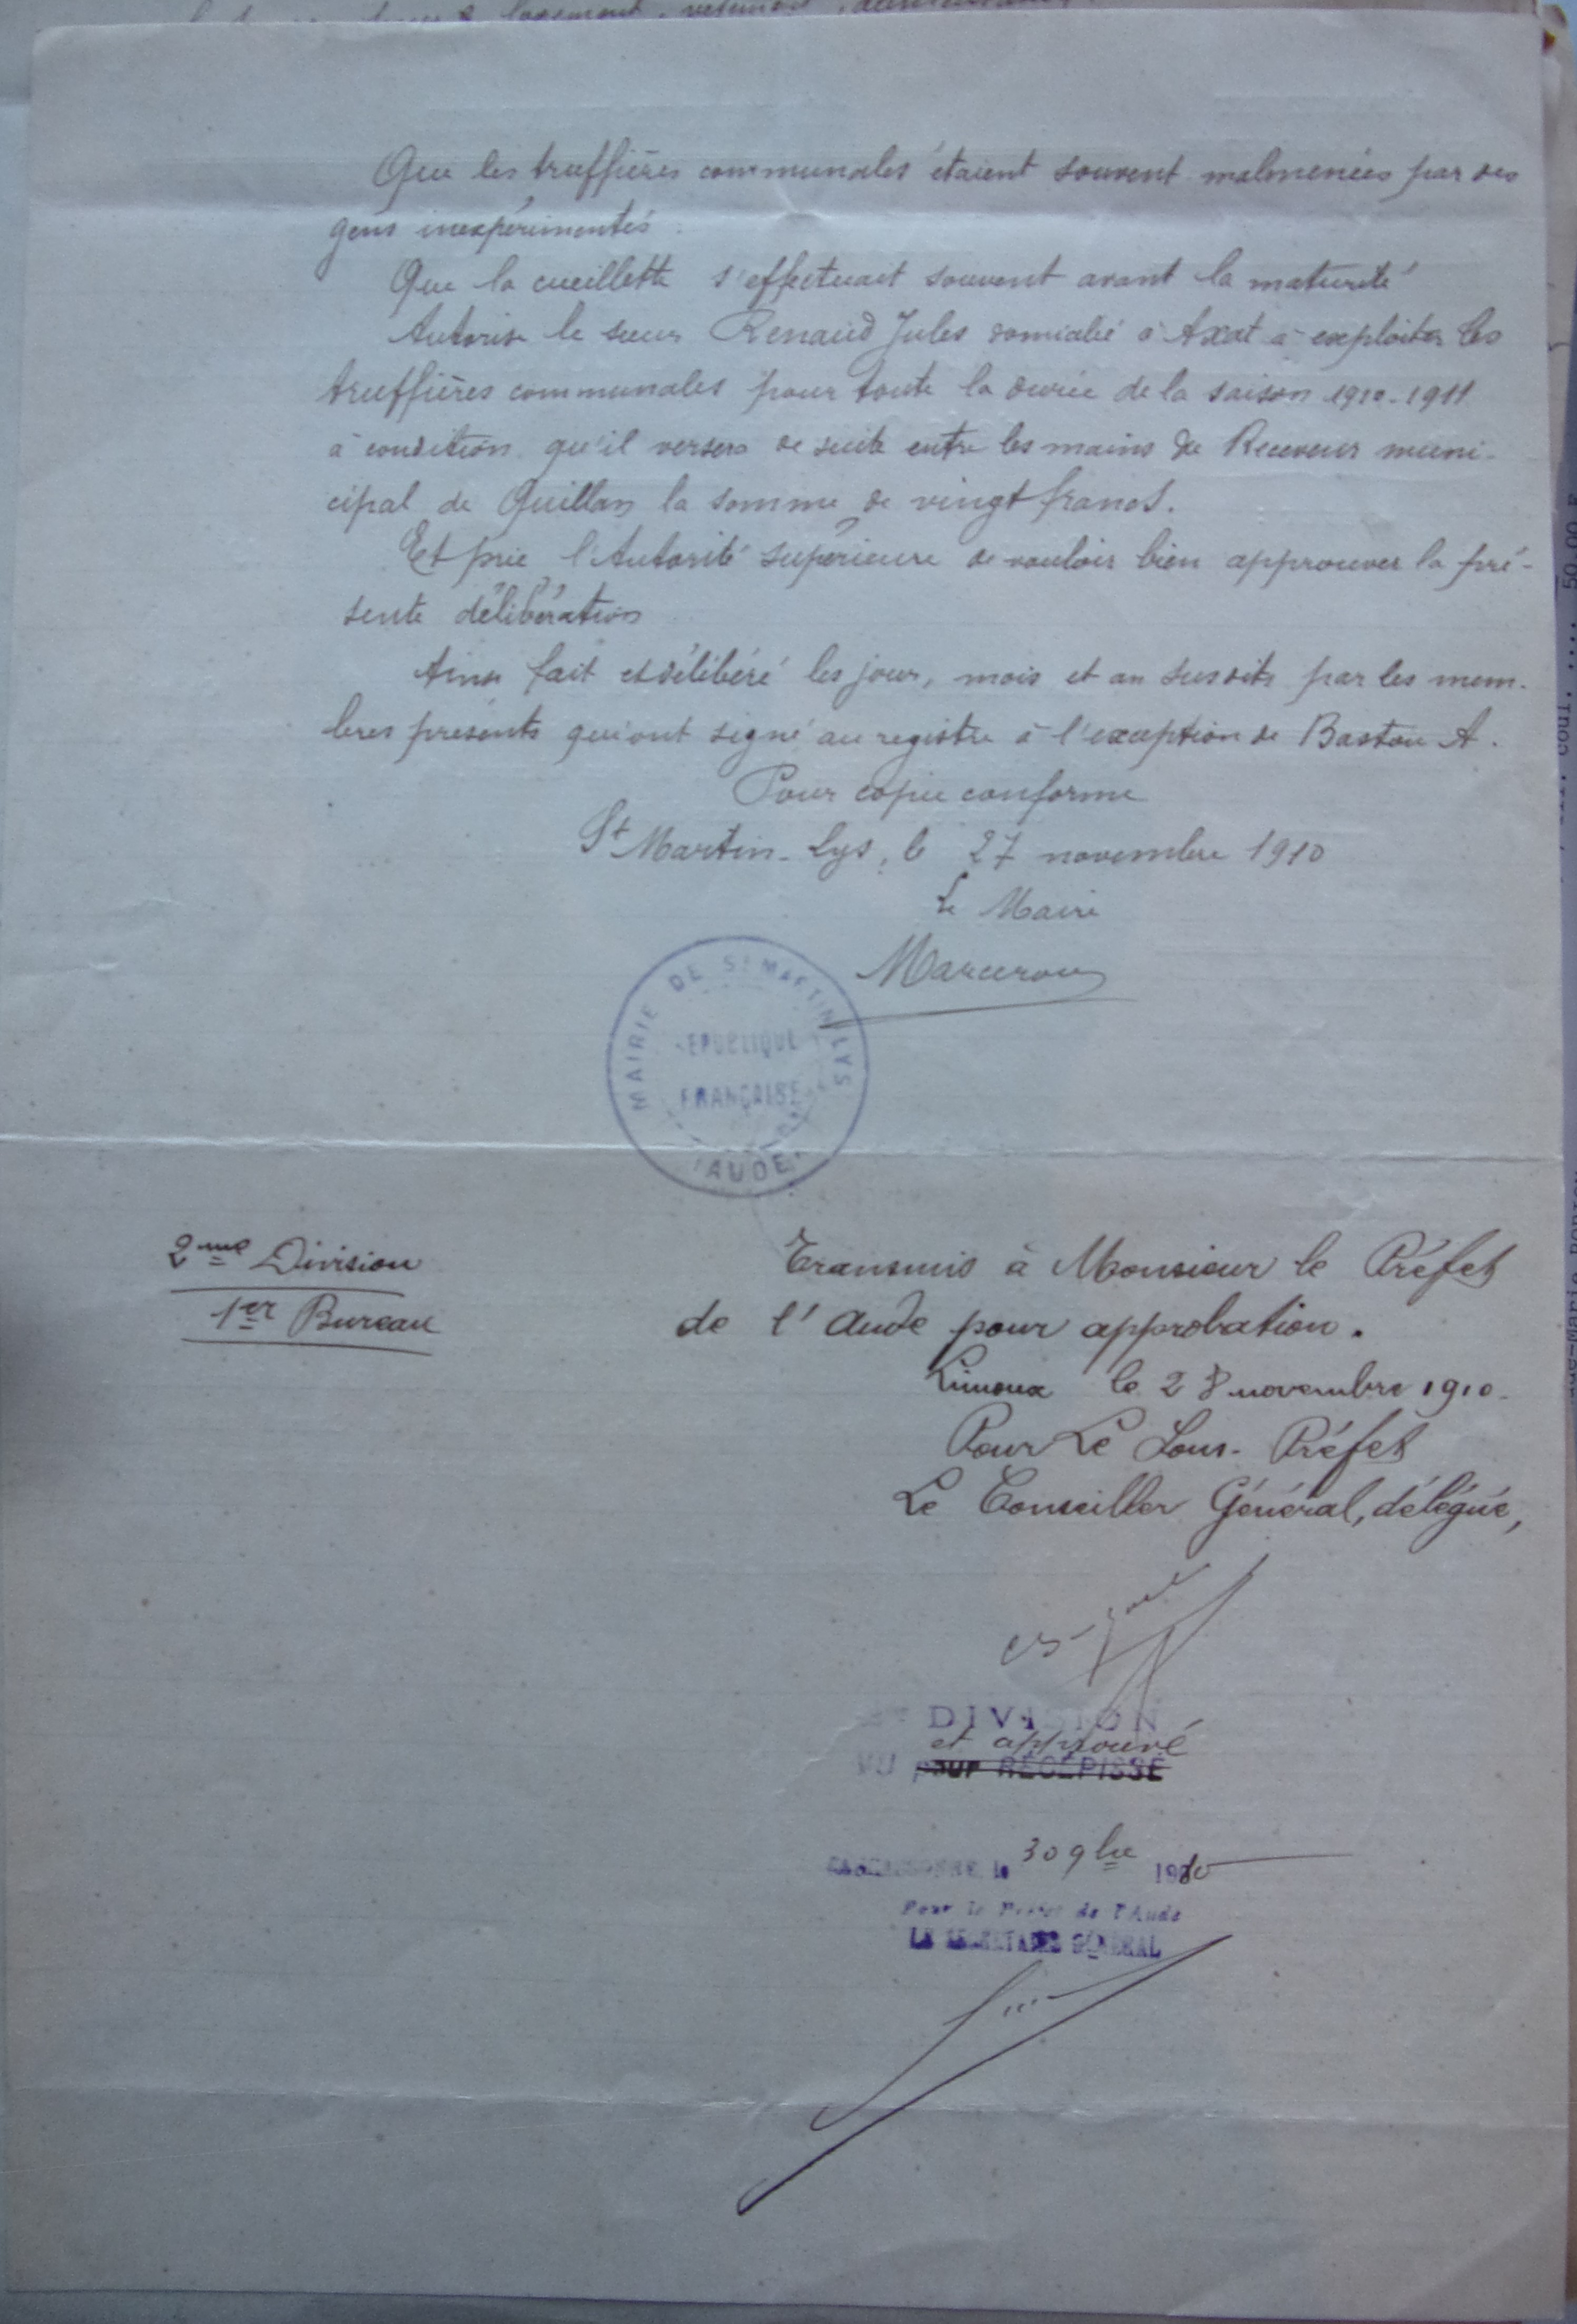 Que les truffières communales étaient souvent malmenées par des
gens inexpérimentés.
Que la cueillette s'effectuait souvent avant la maturité
Autorise le sieur Renaud Jules domicilié à Axat à exploiter les
truffières communales pour toute la durée de la saison 1910-1911
à condition qu'il versera de suite entre les mains du Receveur muni-
cipal de Quillan la somme de vingt francs.
Et prie l'Autorité supérieure de vouloir bien approuver la pré-
sente délibération
Ainsi fait et délibéré les jour, mois et an susdits par les mem-
bres présents qui ont signé au registre à l'exception de Bastou A.
Pour copie conforme
St Martin-Lys, le 27 novembre 1910
Le Maire
Marcerou
MAIRIE DE St MARTIN LYS
REPUBLIQUE
FRANÇAISE
(AUDE)
2me Division
1er Bureau
Transmis à Monsieur le Préfet
de l'Aude pour approbation.
Limoux le 28 novembre 1910.
Pour Le Sous-Préfet
Le Conseiller Général, délégué,
DIVISION
et approuvé
VU pour RÉCÉPISSÉ
CARCASSONNE le 30 9bre 1910
Pour le Préfet de l'Aude
LE SECRÉTAIRE GÉNÉRAL